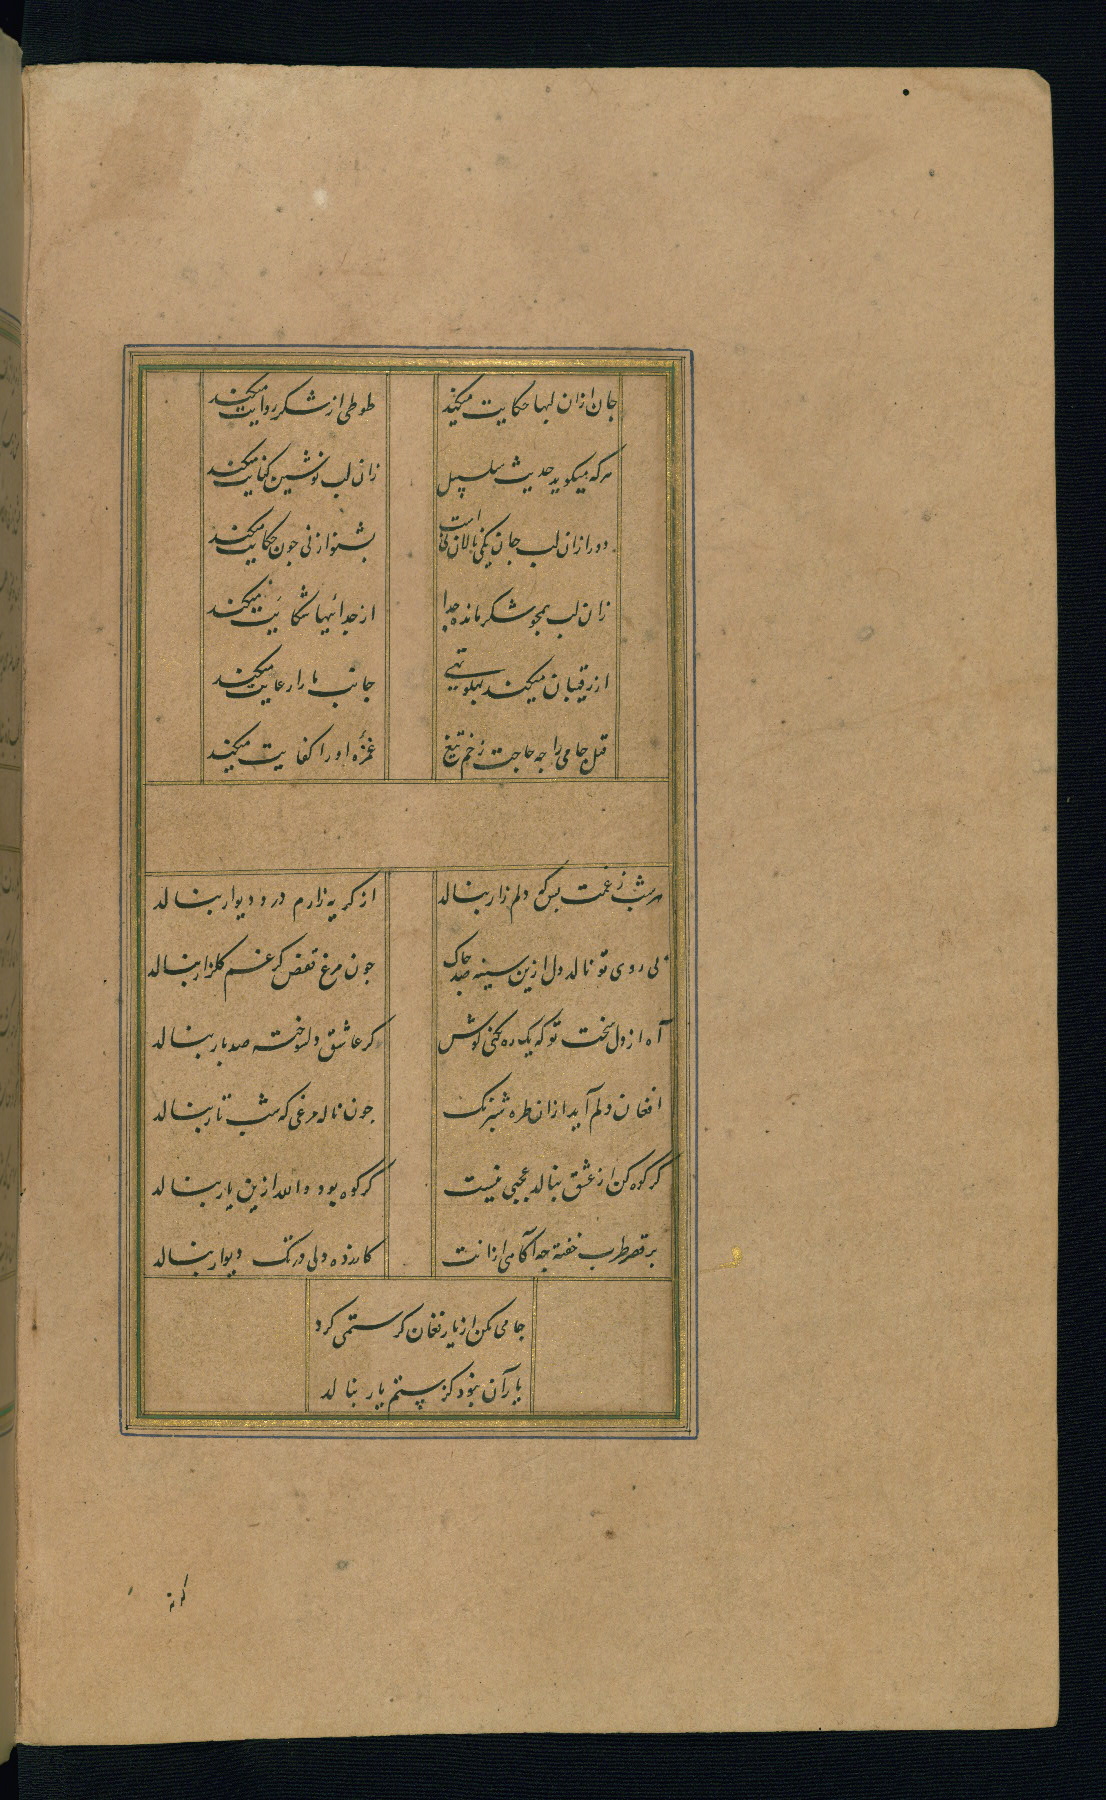 جان ازان لبها حکایت میکند طوطی از شکر روایت میکند
هرکه میکوید حدیث سلسبیل زان لب نوشین کنایت میکند
دور ازان لب جان یکی نالان نی است بشنو از نی جون حکایت میکند
زان لب همجو شکر مانده جدا از جدائیها شکایت میکند
از رقیبان میکند بهلو تهی جانب ما را رعایت میکند
قتل جامی را جه حاجت زخم تیغ غمزه او را کفایت میکند
هر شب ز غمت بس که دلم زار بنالد از کریه زارم در و دیوار بنالد
بی روی تو نالد دل ازین سینه صد جاک جون مرغ قفس کز غم کلزار بنالد
آه از دل سخت تو که یک ره نکنی کوش کر عاشق دلسوخته صد بار بنالد
افغان دلم آید ازان طره شبرنک جون ناله مرغی که شب تار بنالد
کر کوه کن از عشق بنالد عجبی نیست کر کوه بود والله ازین بار بنالد
بر قصر طرب خفته جه آکاهی ازانت کازرده دلی در تک دیوار بنالد
جامی مکن از یار فغان کر ستمی کرد
یار آن نبود کز ستم یار بنالد